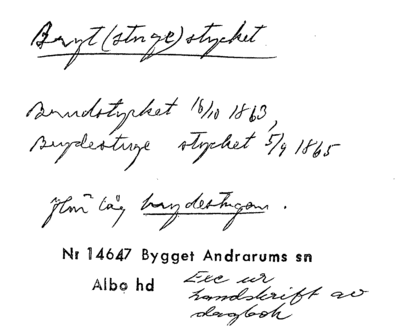 Bryt(stuge)stycket
Brudstycket 16/10 1863,
Brydestuge stycket 5/9 1865
Jfm låg brydestugan.
Nr 14647 Bygget Andrarums sn
Albo hd
Exc ur
handskrift av
dagbok